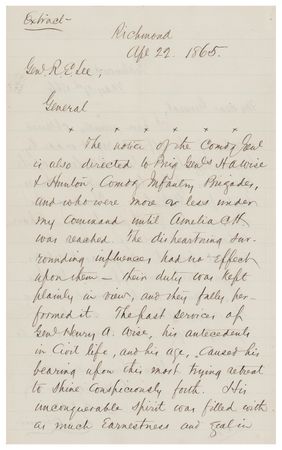 Extract-
Richmond
Apl 22. 1865.
Genl R. E Lee,
General
x x x x x x
The notice of the Comdg Genl
is also directed to Brig Genls H. A Wise
& Hunton, Comdg Infantry Brigades,
and who were more or less under
my Command until Amelia C.H
was reached. The disheartning Sur-
rounding influences had no Effect
upon them — their duty was kept
plainly in view, and they fully per-
formed it. The past services of
Genl Henry A. Wise, his antecedents
in Civil life, and his age, Caused his
bearing upon this most trying retreat
to Shine Conspiciously forth. His
unconquerable Spirit was filled with
as much Earnestness and zeal in